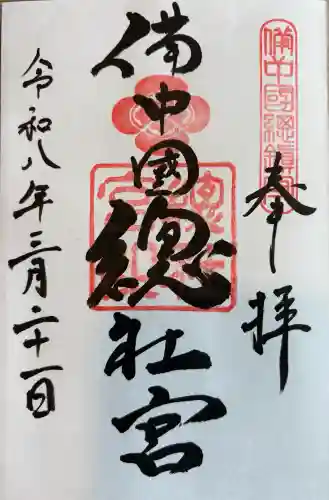 備中国総鎮守
奉拝
備中國總社宮
令和八年三月二十一日